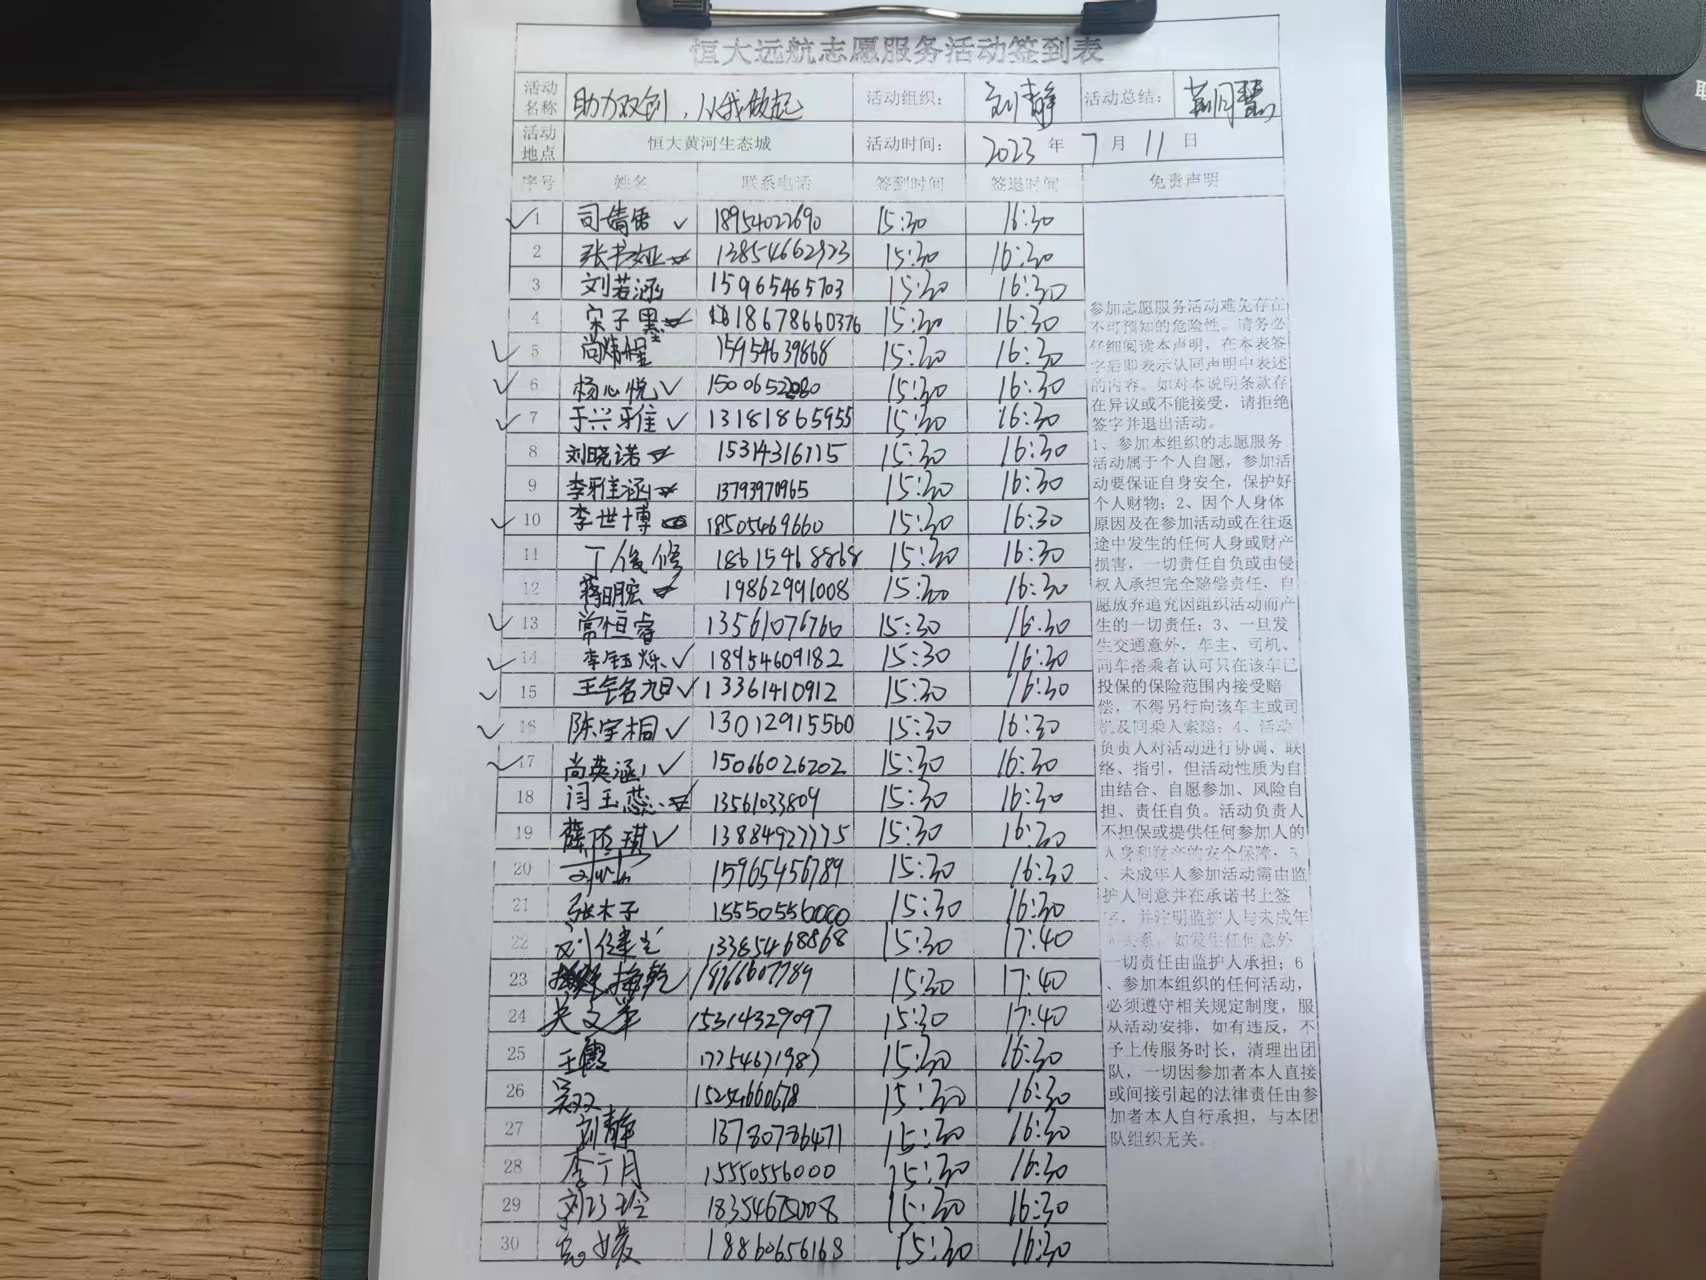 恒大远航志愿服务活动签到表
活动名称 助力双创，从我做起 活动组织： 刘静 活动总结：
活动地点 恒大黄河生态城 活动时间： 2023 年 7 月 11 日
序号 姓名 联系电话 签到时间 签退时间 免责声明
1 司婧雷 18954022690 15:30 16:30
2 张书娅 13854662923 15:30 16:30
3 刘若涵 15965465703 15:30 16:30
4 宋子墨 18678660376 15:30 16:30
5 15954639868 15:30 16:30
6 杨心悦 15:30 16:30
7 于兴雅 13181865955 15:30 16:30
8 刘晓诺 15314316115 15:30 16:30
9 李雅涵 13793970965 15:30 16:30
10 李世博 18505469660 15:30 16:30
11 丁俊修 18615468868 15:30 16:30
12 蒋明宏 19862991008 15:30 16:30
13 常恒睿 13561076760 15:30 16:30
14 李钰烁 18954609182 15:30 16:30
15 王铭旭 13361410912 15:30 16:30
16 陈宇桐 13012915560 15:30 16:30
17 尚英涵 15066026202 15:30 16:30
18 闫玉蕊 13561033809 15:30 16:30
19 13884927775 15:30 16:30
20 15965456789 15:30 16:30
21 张木子 15550556000 15:30 16:30
22 刘健 13385468868 15:30 17:40
23 15:30 17:40
24 吴文华 15314329097 15:30 17:40
25 王霞 17754671987 15:30 16:30
26 吴双 15254660678 15:30 16:30
27 刘静 13780786471 15:30 16:30
28 李丁月 15550556000 15:30 16:30
29 刘巧玲 15:30 16:30
30 18860656168 15:30 16:30
参加志愿服务活动难免存在
不可预知的危险性。请务必
仔细阅读本声明，在本表签
字后即表示认同声明中表述
的内容。如对本说明条款存
在异议或不能接受，请拒绝
签字并退出活动。
1、参加本组织的志愿服务
活动属于个人自愿，参加活
动要保证自身安全，保护好
个人财物；2、因个人身体
原因及在参加活动或在往返
途中发生的任何人身或财产
损害，一切责任自负或由侵
权人承担完全赔偿责任，自
愿放弃追究因组织活动而产
生的一切责任；3、一旦发
生交通意外，车主、司机、
同车搭乘者认可只在该车已
投保的保险范围内接受赔
偿，不得另行向该车主或司
机及同乘人索赔；4、活动
负责人对活动进行协调、联
络、指引，但活动性质为自
由结合、自愿参加、风险自
担、责任自负。活动负责人
不担保或提供任何参加人的
人身和财产的安全保障；5
、未成年人参加活动需由监
护人同意并在承诺书上签
字，并注明监护人与未成年
人关系，如发生任何意外
一切责任由监护人承担；6
、参加本组织的任何活动，
必须遵守相关规定制度，服
从活动安排，如有违反，不
予上传服务时长，清理出团
队，一切因参加者本人直接
或间接引起的法律责任由参
加者本人自行承担，与本团
队组织无关。